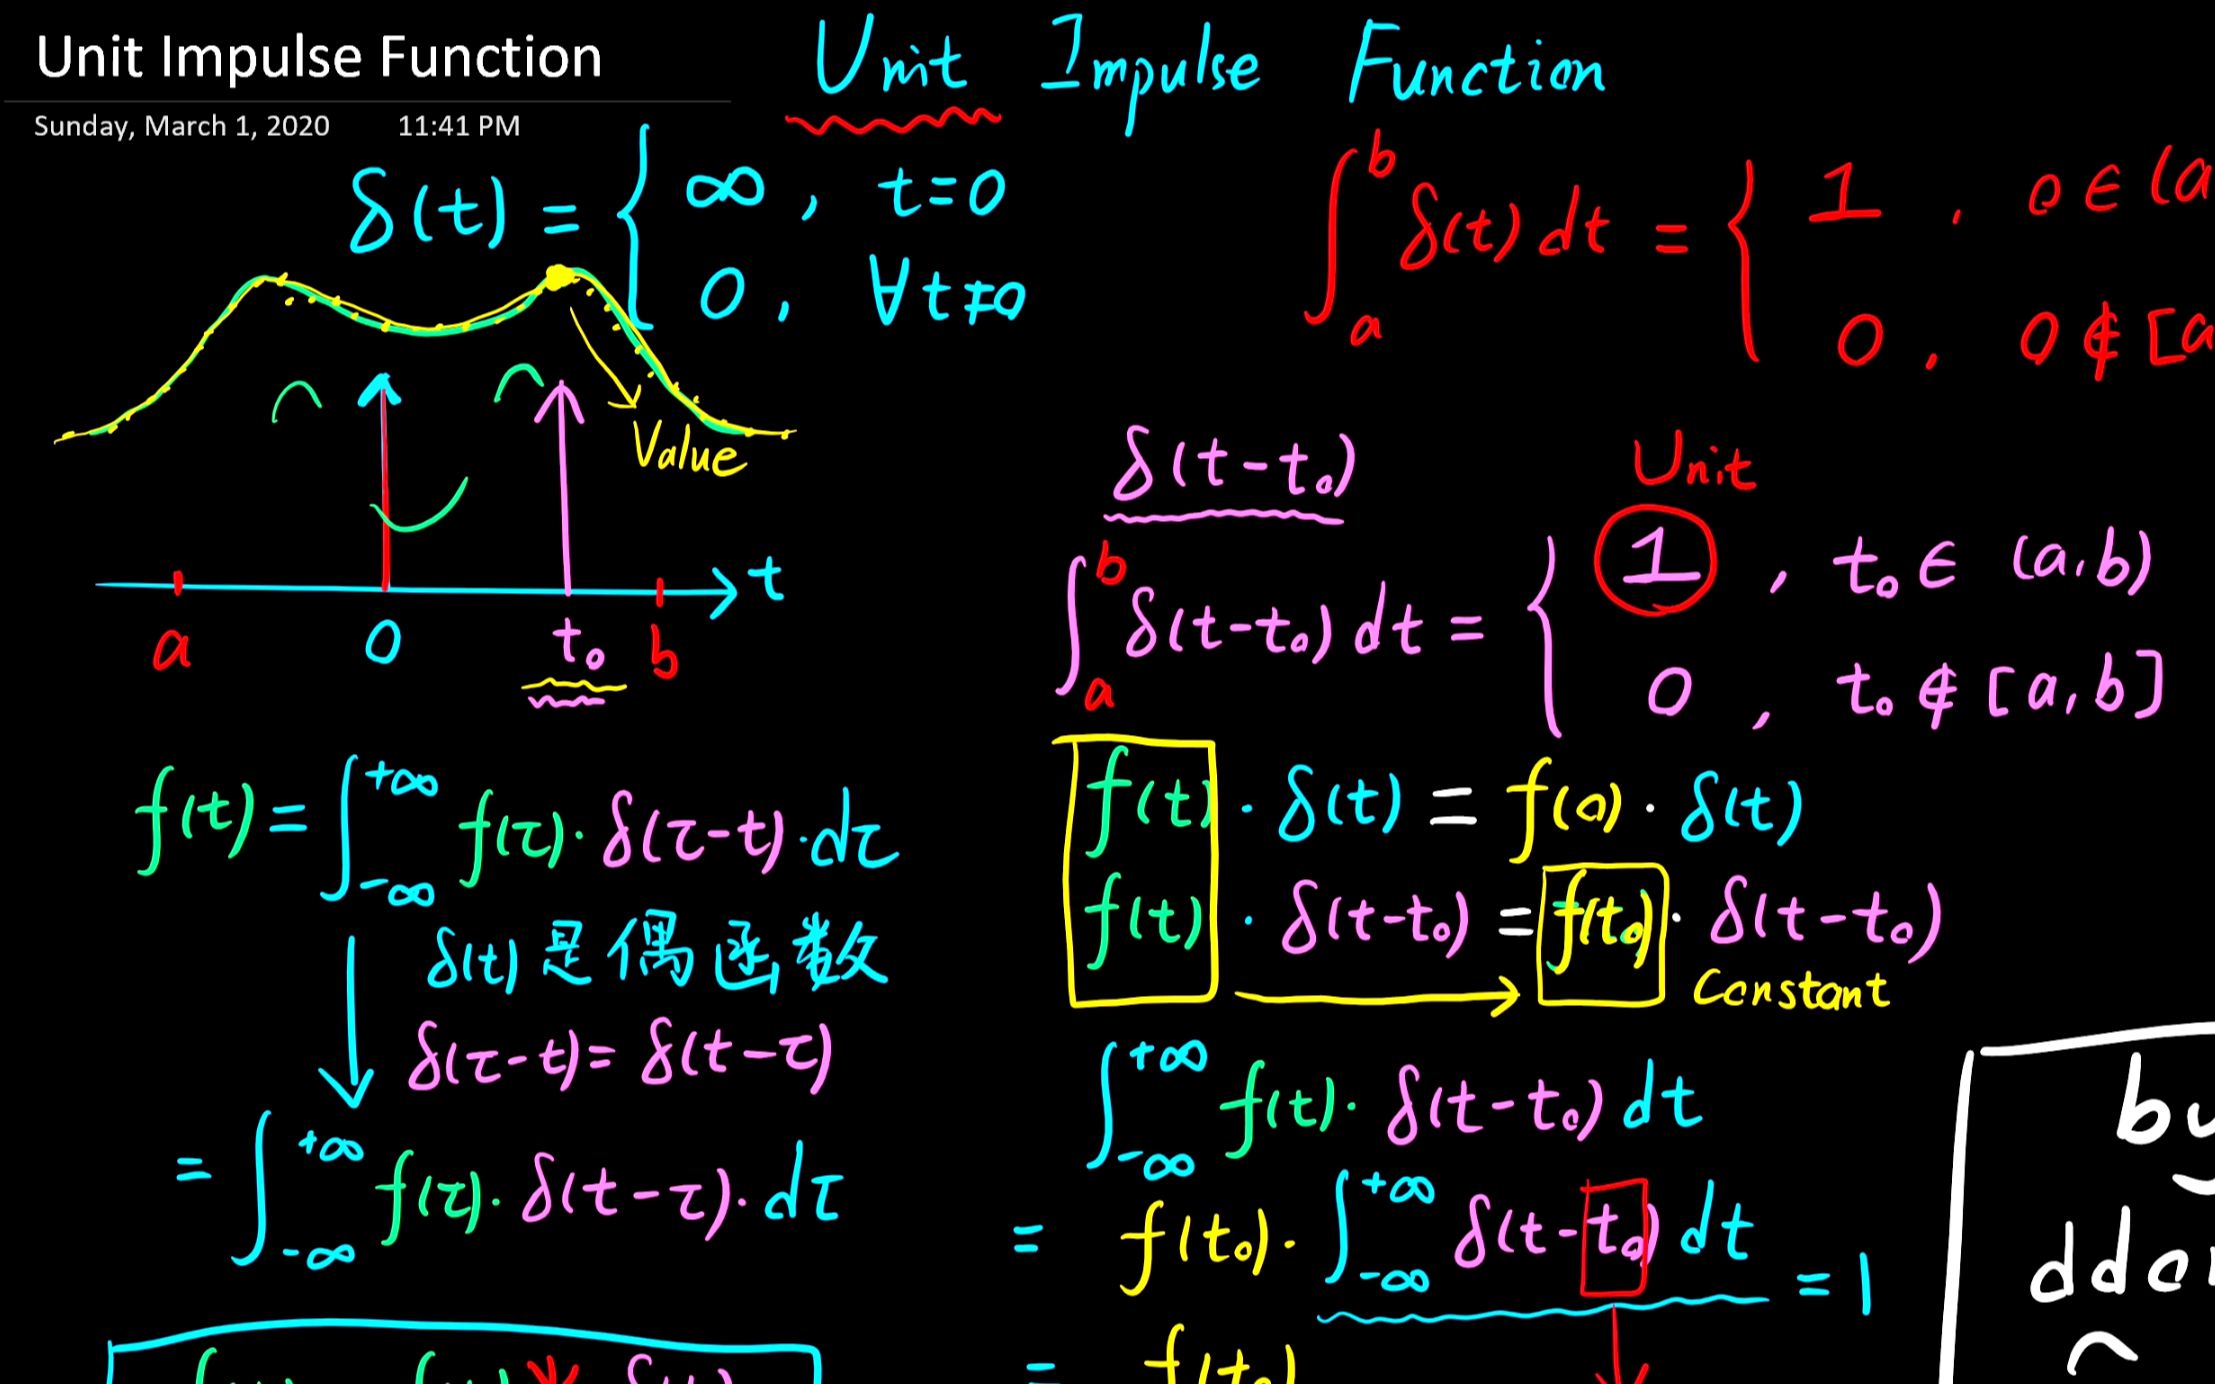 Unit Impulse Function
Sunday, March 1, 2020 11:41 PM
Unit Impulse Function
δ(t) = { ∞, t=0
0, ∀t≠0
∫_a^b δ(t) dt = { 1, 0∈(a
0, 0∉[a
Value
a 0 t₀ b t
δ(t-t₀)
Unit
∫_a^b δ(t-t₀) dt = { 1, t₀∈(a,b)
0, t₀∉[a,b]
f(t) = ∫_{-∞}^{+∞} f(τ)·δ(τ-t)·dτ
δ(t)是偶函数
δ(τ-t)=δ(t-τ)
= ∫_{-∞}^{+∞} f(τ)·δ(t-τ)·dτ
f(t)·δ(t) = f(0)·δ(t)
f(t)·δ(t-t₀) = f(t₀)·δ(t-t₀)
Constant
∫_{-∞}^{+∞} f(t)·δ(t-t₀) dt
= f(t₀)·∫_{-∞}^{+∞} δ(t-t₀) dt = 1
= f(t₀)